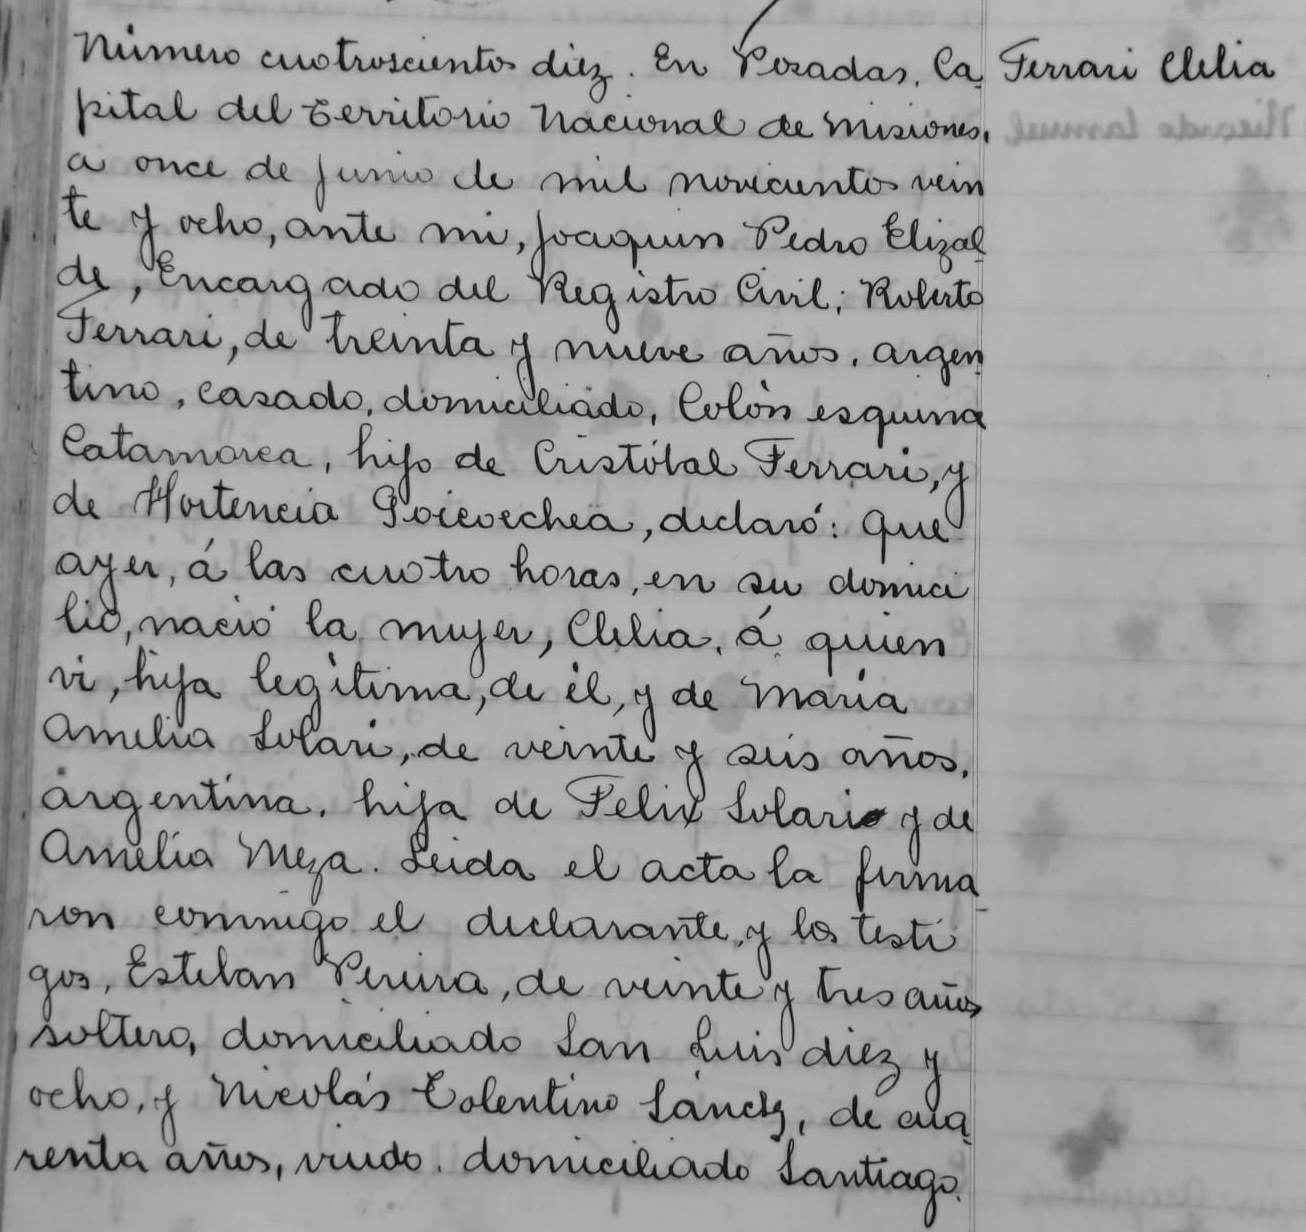 Número cuotroscientos diez. En Posadas, Ca
Ferrari Clelia
pital del Territorio Nacional de Misiones,
a once de Junio de mil novicientos vein
te y ocho, ante mi, Joaquin Pedro Elizal
de, Encargado del Registro Civil; Roberto
Ferrari, de treinta y nueve años, argen
tino, casado, domiciliado, Colón esquina
Catamarca, hijo de Cristóbal Ferrari, y
de Hortencia Goicoechea, declaró: Que
ayer, á las cuotro horas, en su domici
lio, nació la mujer, Clelia, á quien
vi, hija legitima, de él, y de María
Amelia Solari, de veinte y seis años,
argentina, hija de Felix Solari y de
Amelia Meza. Leida el acta la firma
ron conmigo el declarante, y los testi
gos, Esteban Pereira, de veinte y tres años
soltero, domiciliado San Luis diez y
ocho, y Nicolás Tolentino Sánchz, de cua
renta años, viudo, domiciliado Santiago